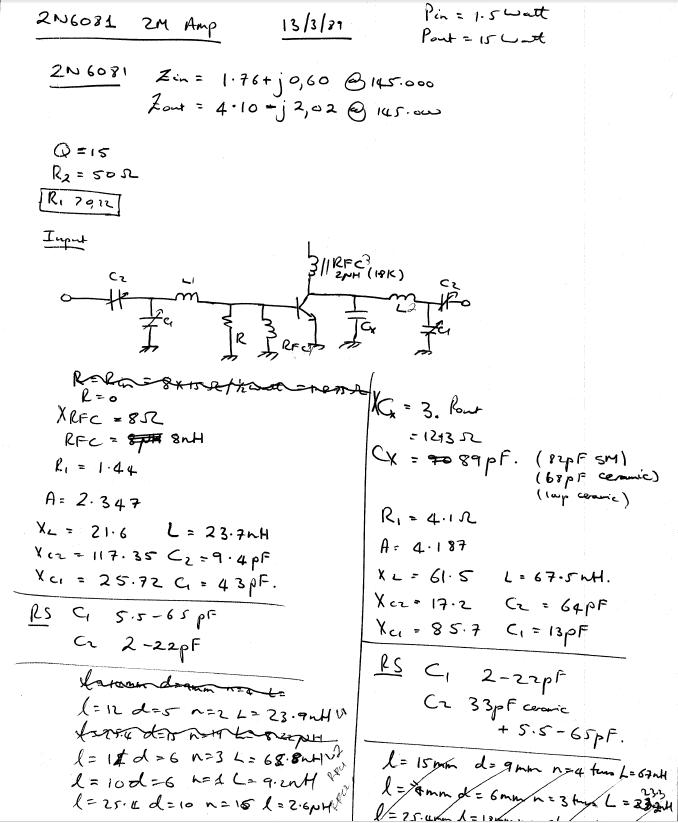 2N6081 2M Amp 13/3/89
Pin = 1.5 Watt
Pout = 15 Watt
2N6081 Zin = 1.76+j0,60 @ 145.000
Zout = 4.10 -j 2,02 @ 145.000
Q = 15
R2 = 50Ω
R1
Input
C2 L1 C1 R RFC RFC 2µH (18K) Cx L2 C2 C1
R=0
XRFC = 8Ω
RFC = 8nH
R1 = 1.44
A = 2.347
XL = 21.6 L = 23.7nH
Xc2 = 117.35 C2 = 9.4pF
Xc1 = 25.72 C1 = 43pF.
RS C1 5.5-65pF
C2 2-22pF
l=12 d=5 n=2 L=23.9nH L1
d=6 n=3 L=68.8nH L2
l=10 d=6 n=1 L=9.2nH RFC1
l=25.4 d=10 n=15 l=2.6µH RFC2
XCx = 3. Pout
= 12.43Ω
Cx = 89pF. (82pF SM)
(68pF ceramic)
ceramic)
R1 = 4.1Ω
A = 4.187
XL = 61.5 L = 67.5nH.
Xc2 = 17.2 C2 = 64pF
Xc1 = 85.7 C1 = 13pF
RS C1 2-22pF
C2 33pF ceramic
+ 5.5-65pF.
l = 15mm d = 9mm n=4 turns L=67nH
d = 6mm n=3 turns L =
l=25.4mm